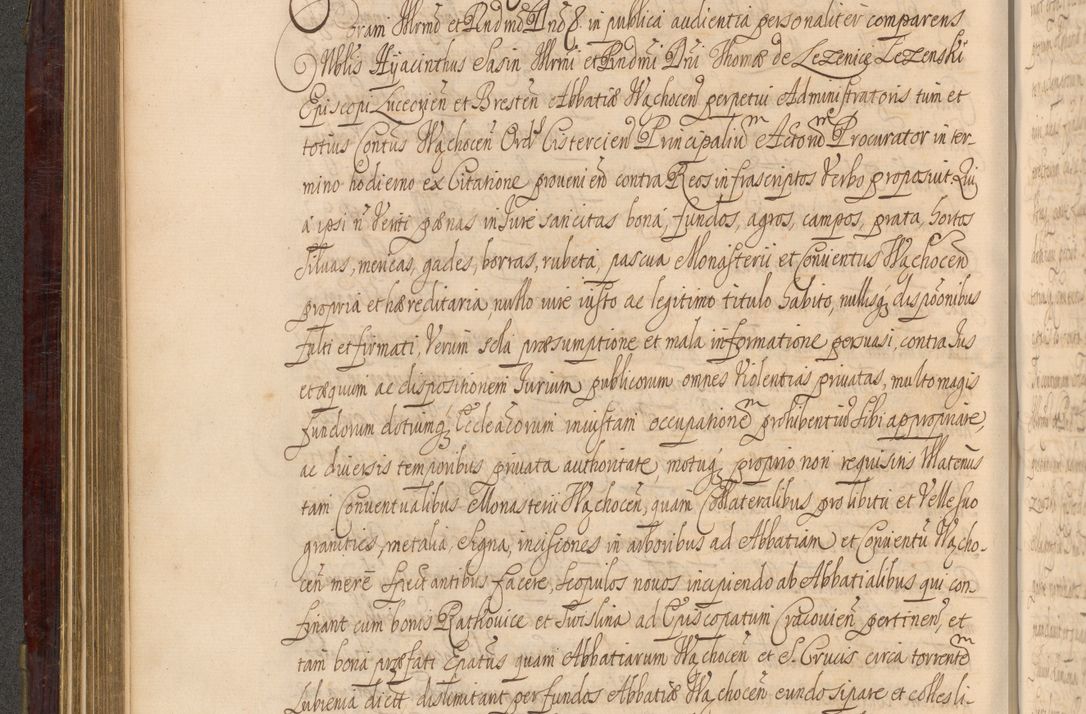 Coram Illrmo et Rndmo Dno &c in publica audientia personaliter comparens
Nblis Hyacinthus Sasin Illrmi et Rndmi Dni Thomæ de Lezenicę Lezenski
Episcopi Luceovien̄ et Bresten̄ Abbatiæ Wąchocen̄ perpetui Administratoris tum et
totius Contūs Wąchocen̄ Ord: Cistercien̄ Principaliūm Actorūm Procurator in ter-
mino hodierno ex Citatione provenien̄ contra Reos infrascriptos Verbo proposuit. Qui
a ipsi n̄ Veriti pænas in Jure sancitas bona, fundos, agros, campos, prata, hortos
Siluas, mericas, gades, borras, rubeta, pascua Monasterii et Conventus Wąchocen̄
propria et hæreditaria nullo iure iusto ac legitimo titulo habito, nullisq́ dispōonibus
fulti et firmati, Verum sola præsumptione et mala informatione persuasi, contra Jus
et æquum ac dispositionem Jurium publicorum omnes Violentias privatas, multo magis
fundorum dotiumq́ Ecclearūorum iniustam occupationēm prohibentiū Sibi appropriare,
ac diversis temporibus privata authoritate motuq́ proprio non requisitis Matenūs
tam Conventualibus Monasterii Wąchocen̄, quam Collateralibus pro libitu et Velle suo
granities, metalia, signa, incisiones in arboribus ad Abbatiam et Conventū Wącho-
cen̄ merē spectantibus facere, Scopulos novos incipiendo ab Abbatialibus qui con
finant cum bonis Rathovice et Swislina ad Episcopatum Cracovien̄ pertinen̄, et
tam bona præfati Epatūs quam Abbatiarum Wąchocen̄ et S. Crucis circa torrentēm
Lubienia dictt dislimitant per fundos Abbatiæ Wąchocen̄ eundo sipare et colles li-